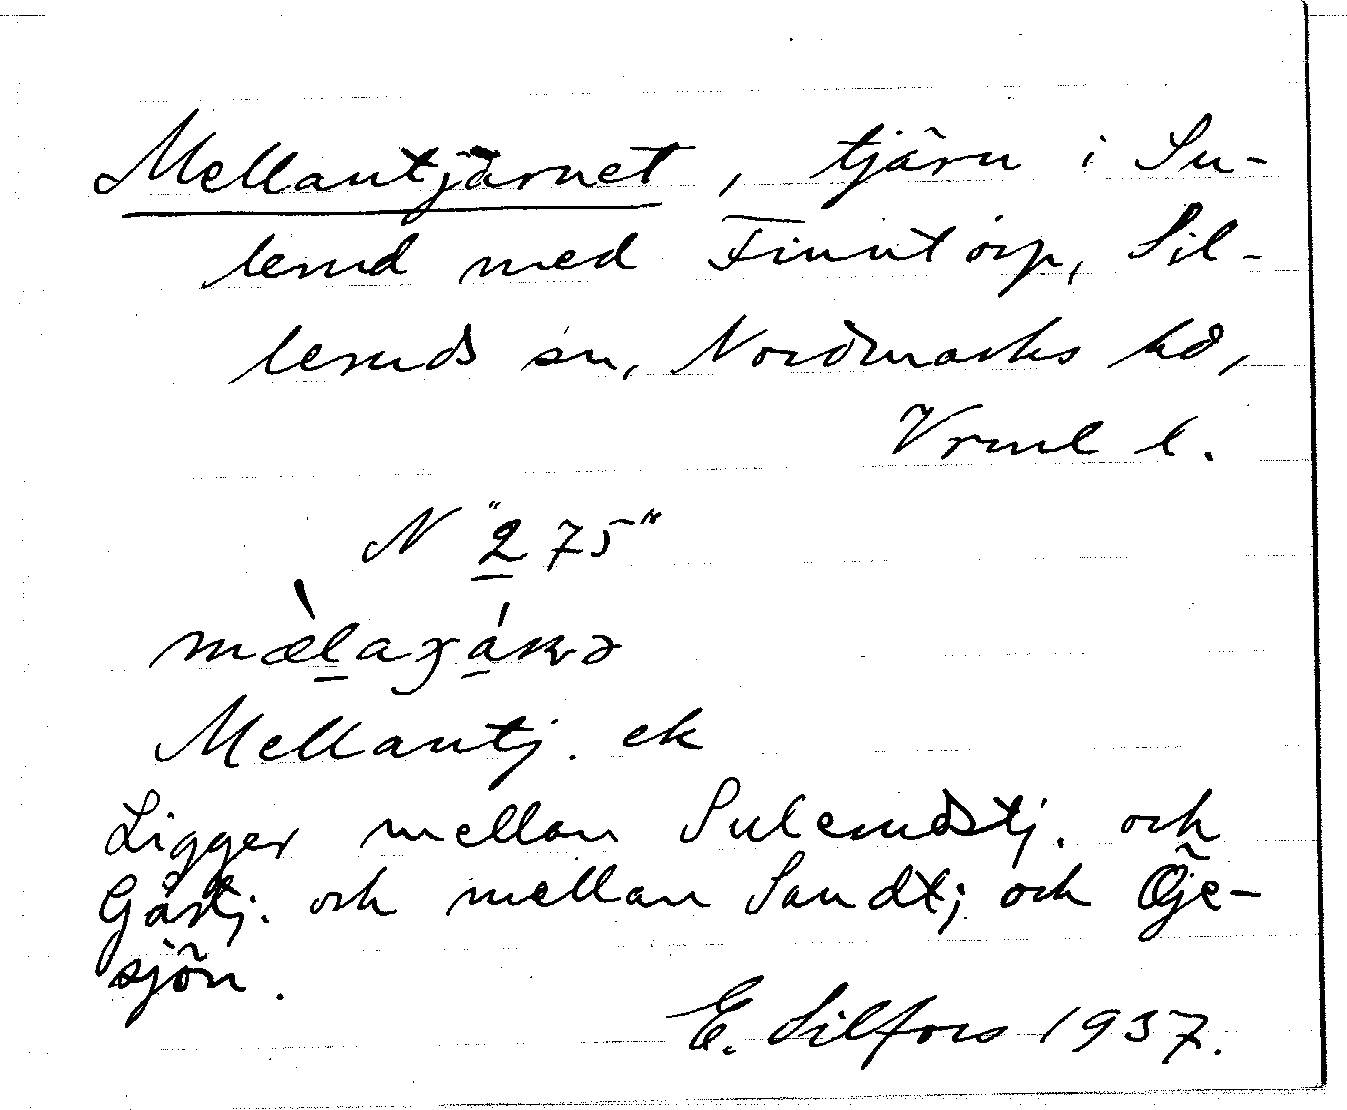 Mellantjärnet, tjärn i Su-
lerud med Finntorp, Sil-
leruds sn, Nordmarks hd,
Vrml l.
N "275"
mæ̀laʒáɳə
Mellantj. ek
Ligger mellan Sulerudstj. och
Gåstj. och mellan Sandtj och Öje-
sjön.
E. Silfors 1937.